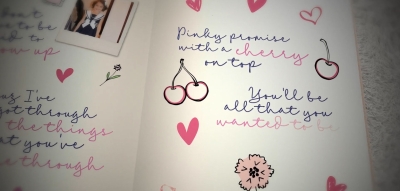 Don't
to be
d to
ow up
as I've
got through
the things
at you've
e through
Pinky promise
with a cherry
on top
You'll be
all that you
wanted to be